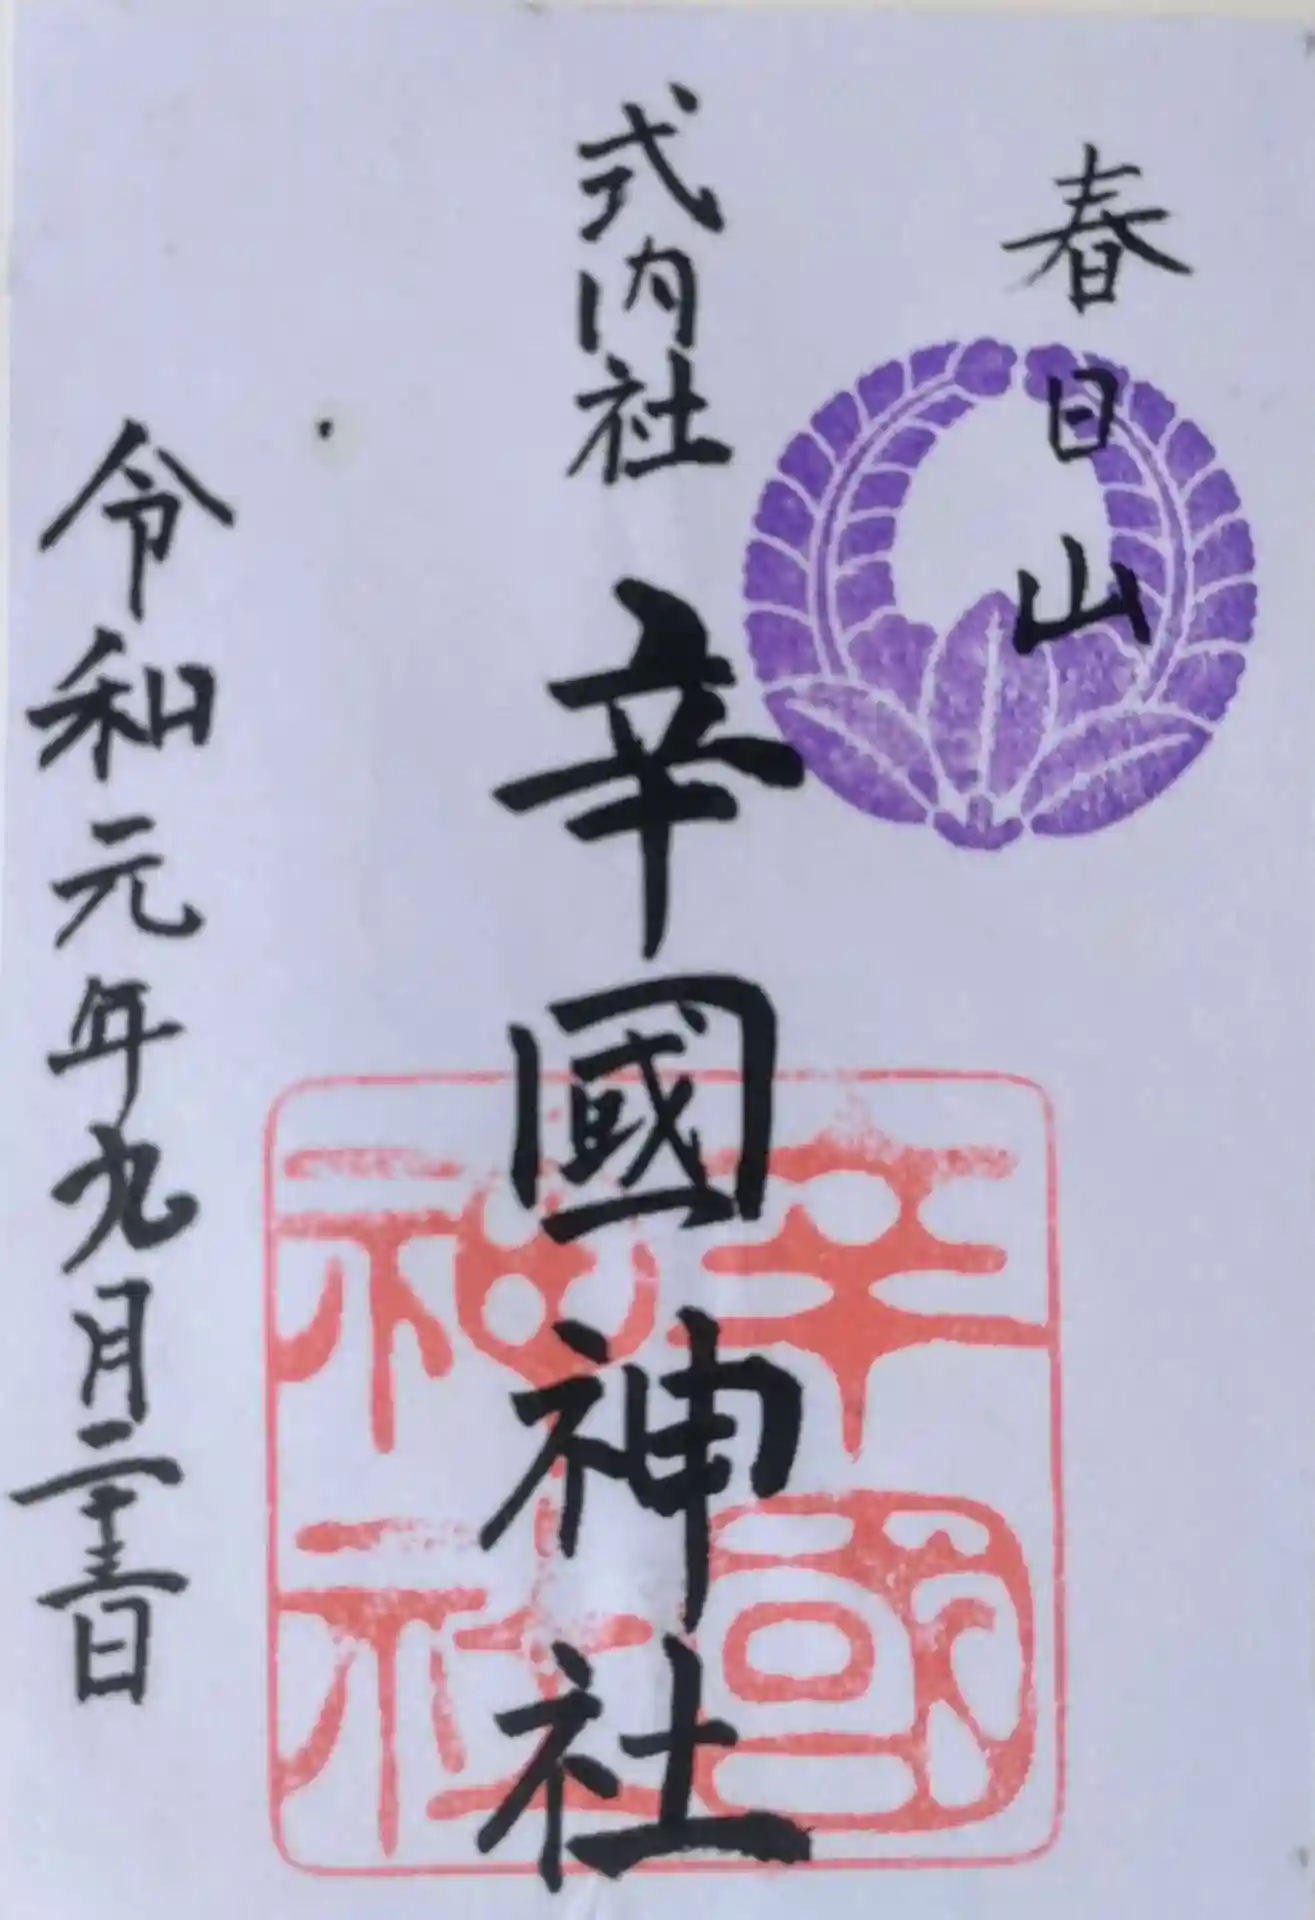 春日山
式内社 辛國神社
令和元年九月二十三日
辛國
神社